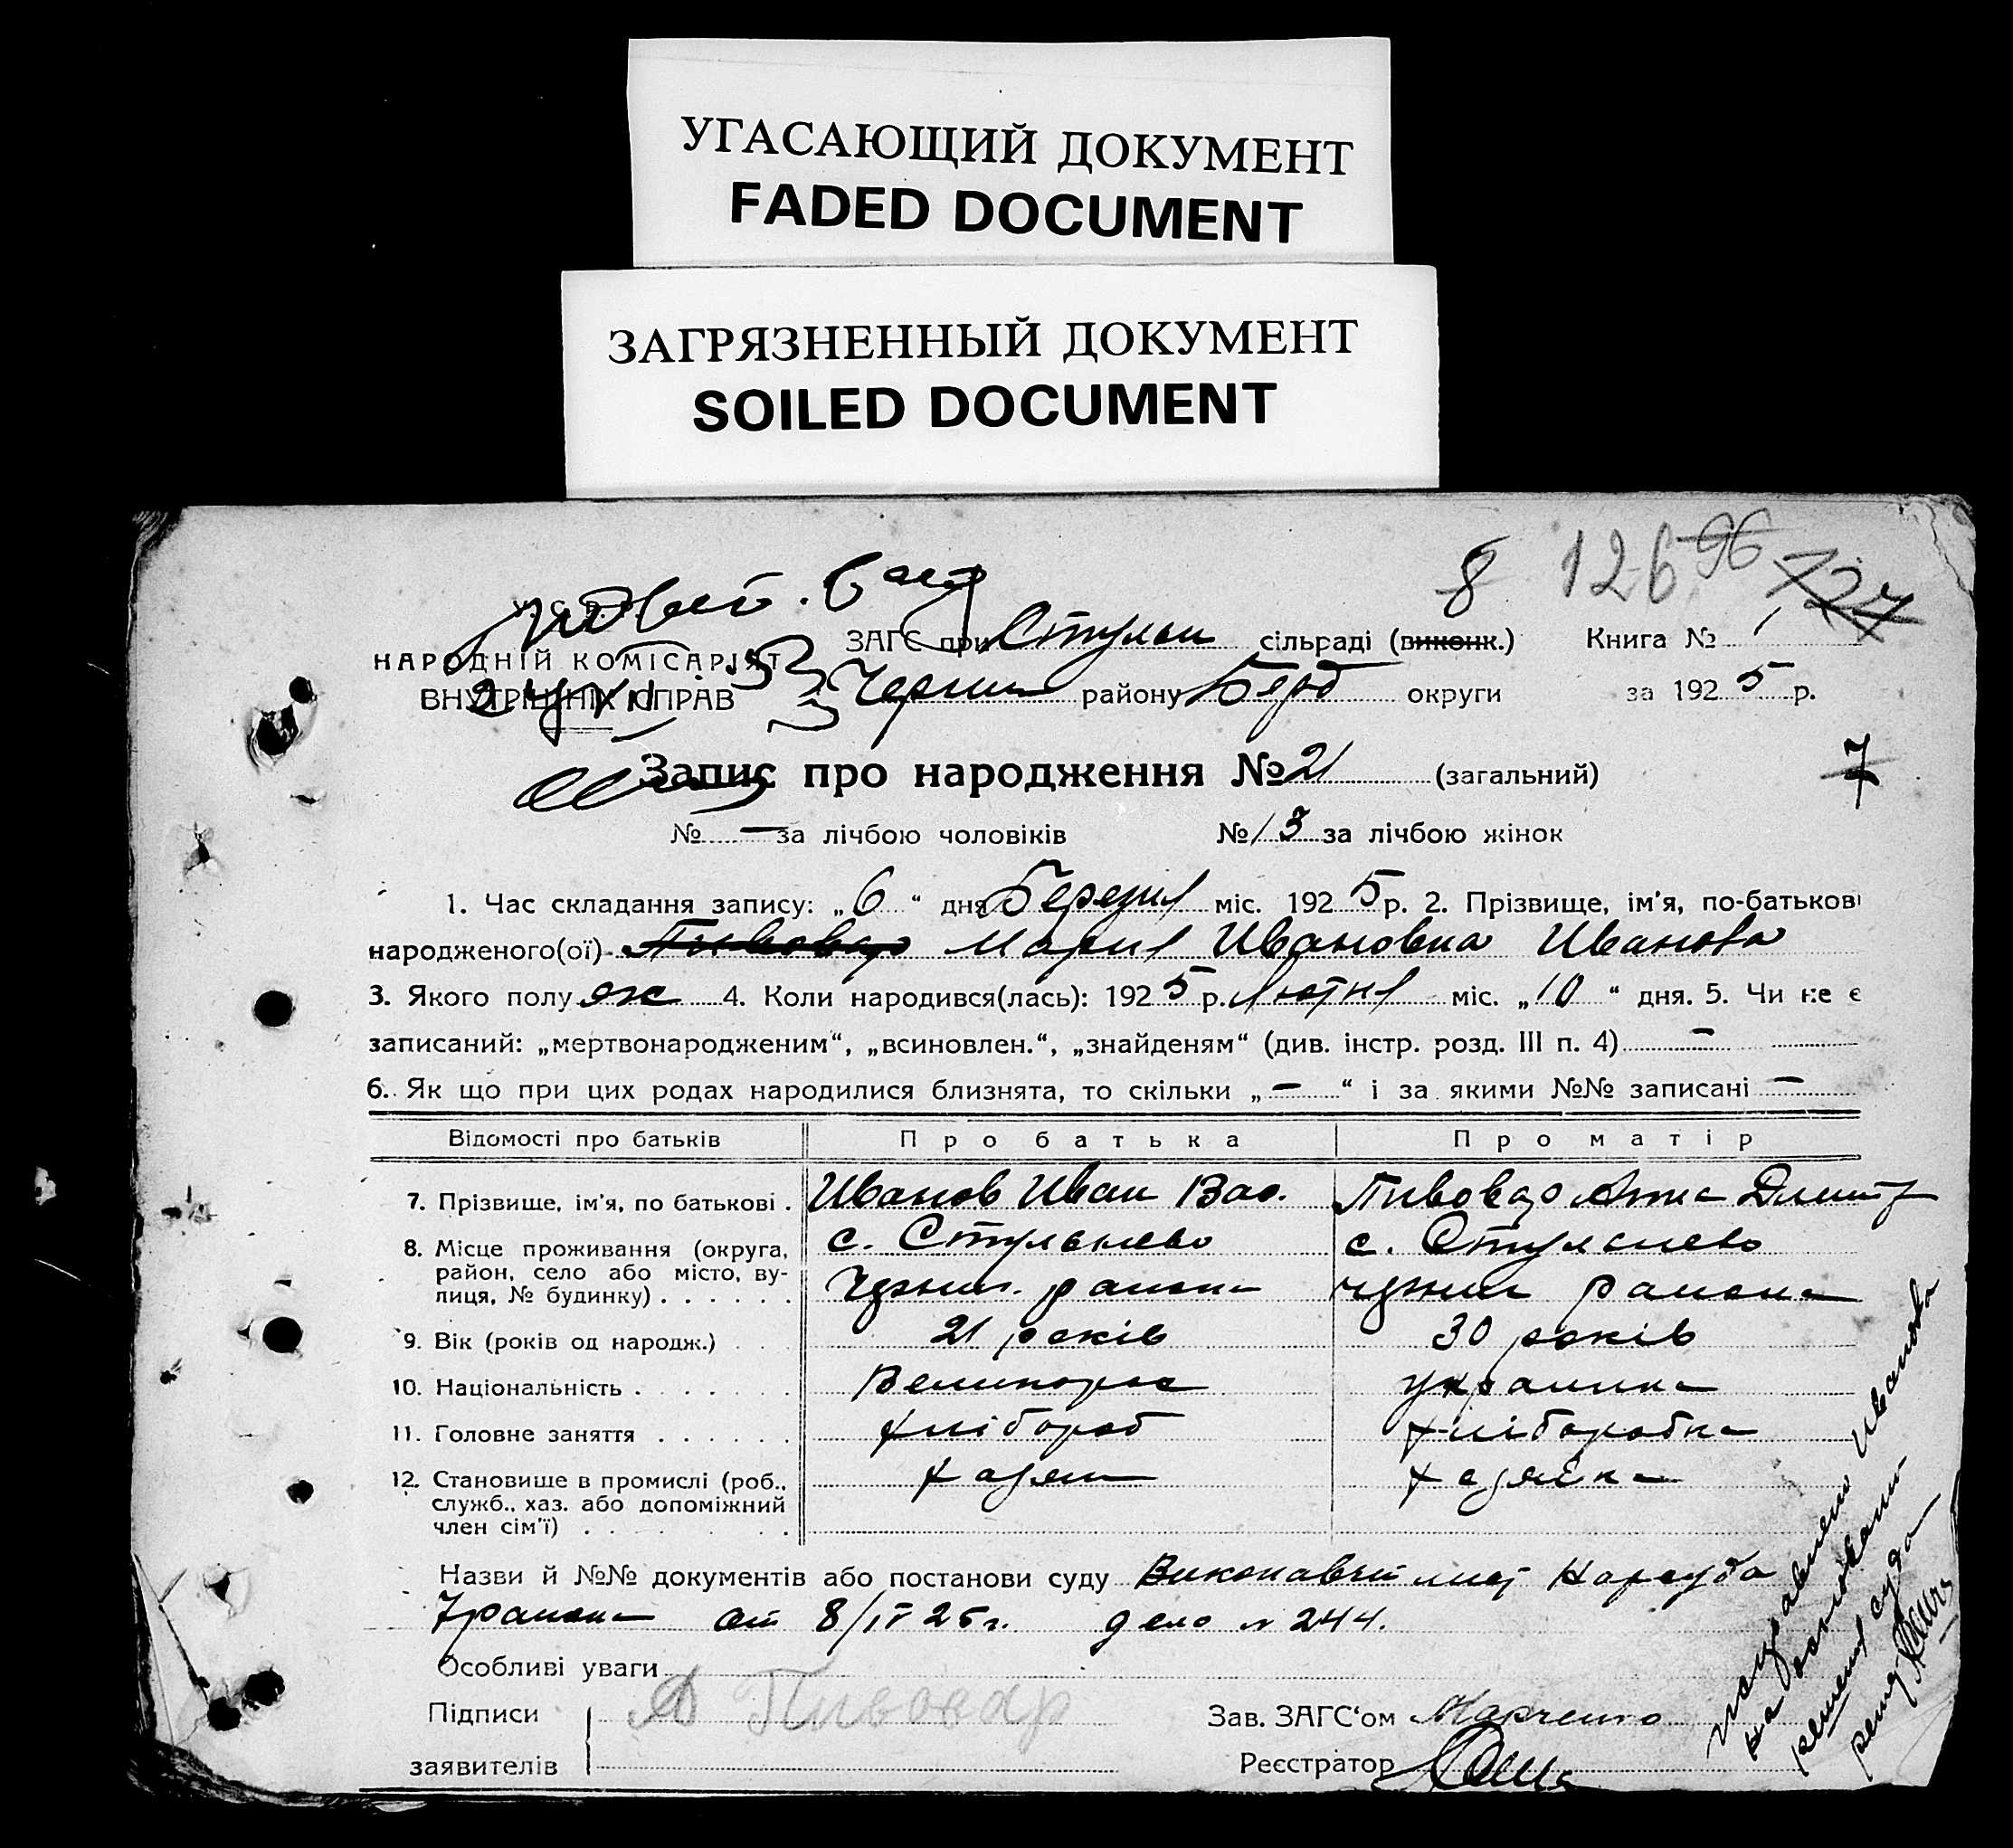 УГАСАЮЩИЙ ДОКУМЕНТ
FADED DOCUMENT
ЗАГРЯЗНЕННЫЙ ДОКУМЕНТ
SOILED DOCUMENT
8 126 96 127
У.С.Р.Р.
НАРОДНІЙ КОМІСАРІЯТ
ВНУТРІШНІХ СПРАВ
ЗАГС при Стульн сільраді (виконк.) Книга № 1
Черниг району Берд округи за 1925 р.
7
Запис про народження № 21 (загальний)
№ — за лічбою чоловіків № 13 за лічбою жінок
1. Час складання запису: „6“ дня Березня міс. 1925 р. 2. Прізвище, ім'я, по-батькові
народженого(ої) Пивовар Мария Ивановна Иванова
3. Якого полу ж 4. Коли народився(лась): 1925 р. Лютня міс. „10“ дня. 5. Чи не є
записаний: „мертвонародженим“, „всиновлен.“, „знайденям“ (див. інстр. розд. III п. 4) —
6. Як що при цих родах народилися близнята, то скільки „—“ і за якими №№ записані —
Відомості про батьків Про батька Про матір
7. Прізвище, ім'я, по батькові . Иванов Иван Вас. Пивовар Анна Дмитр
8. Місце проживання (округа, с. Стульнево с. Стульнево
район, село або місто, ву-
лиця, № будинку) . . . . . . Черниг. района черниг района
9. Вік (років од народж.) . . . 21 років 30 років
10. Національність . . . . . Великорос украинка
11. Головне заняття . . . . . . хлібороб хліборобка
12. Становище в промислі (роб., хазяин хазяйка
служб., хаз. або допоміжний
член сім'ї) . . . . . . .
Назви й №№ документів або постанови суду Виконавчий лист Нарсуда
7 района от 8/IV 25 г. дело № 244.
Особливі уваги
Підписи А Пивовар Зав. ЗАГС'ом Марченко
заявителів Реєстратор
исправлено Иванова
на основании
решения суда